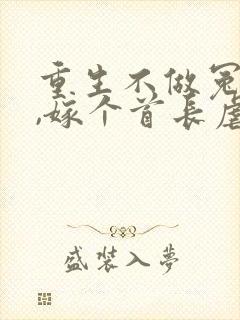 重生不做冤
,嫁个首长虐
盛装入夢